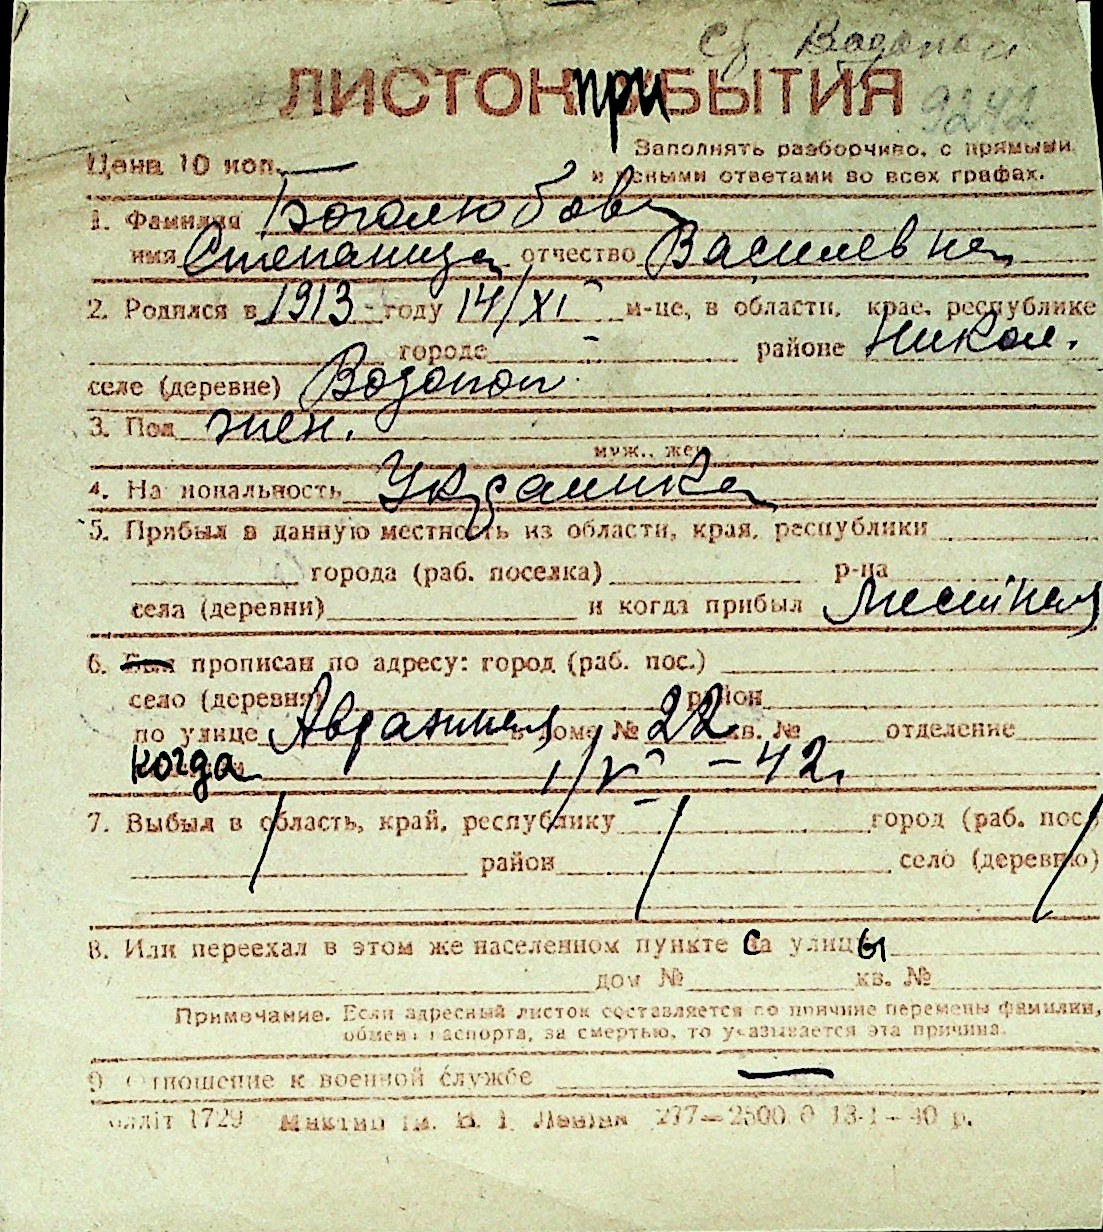 с. Водопой
ЛИСТОК при БЫТИЯ
9242
Цена 10 коп.
Заполнять разборчиво, с прямыми
и ясными ответами во всех графах.
1. Фамилия Боголюбова
имя Степанида отчество Васильевна
2. Родился в 1913 году 14/XI м-це, в области, крае, республике
городе - районе Никол.
селе (деревне) Водопой
3. Пол жен.
муж., жен.
4. Национальность Украинка
5. Прибыл в данную местность из области, края, республики
города (раб. поселка) р-на
села (деревни) и когда прибыл Местная
6. Был прописан по адресу: город (раб. пос.)
село (деревня) район
по улице в доме № 22 кв. № отделение
когда 1/V - 42.
7. Выбыл в область, край, республику город (раб. пос.)
район село (деревню)
8. Или переехал в этом же населенном пункте с улицы
дом № кв. №
Примечание. Если адресный листок составляется по причине перемены фамилии,
обмена паспорта, за смертью, то указывается эта причина.
9. Отношение к военной службе —
лліт 1729 ім. В. І. Леніна 277—2500 0 13-1-40 р.